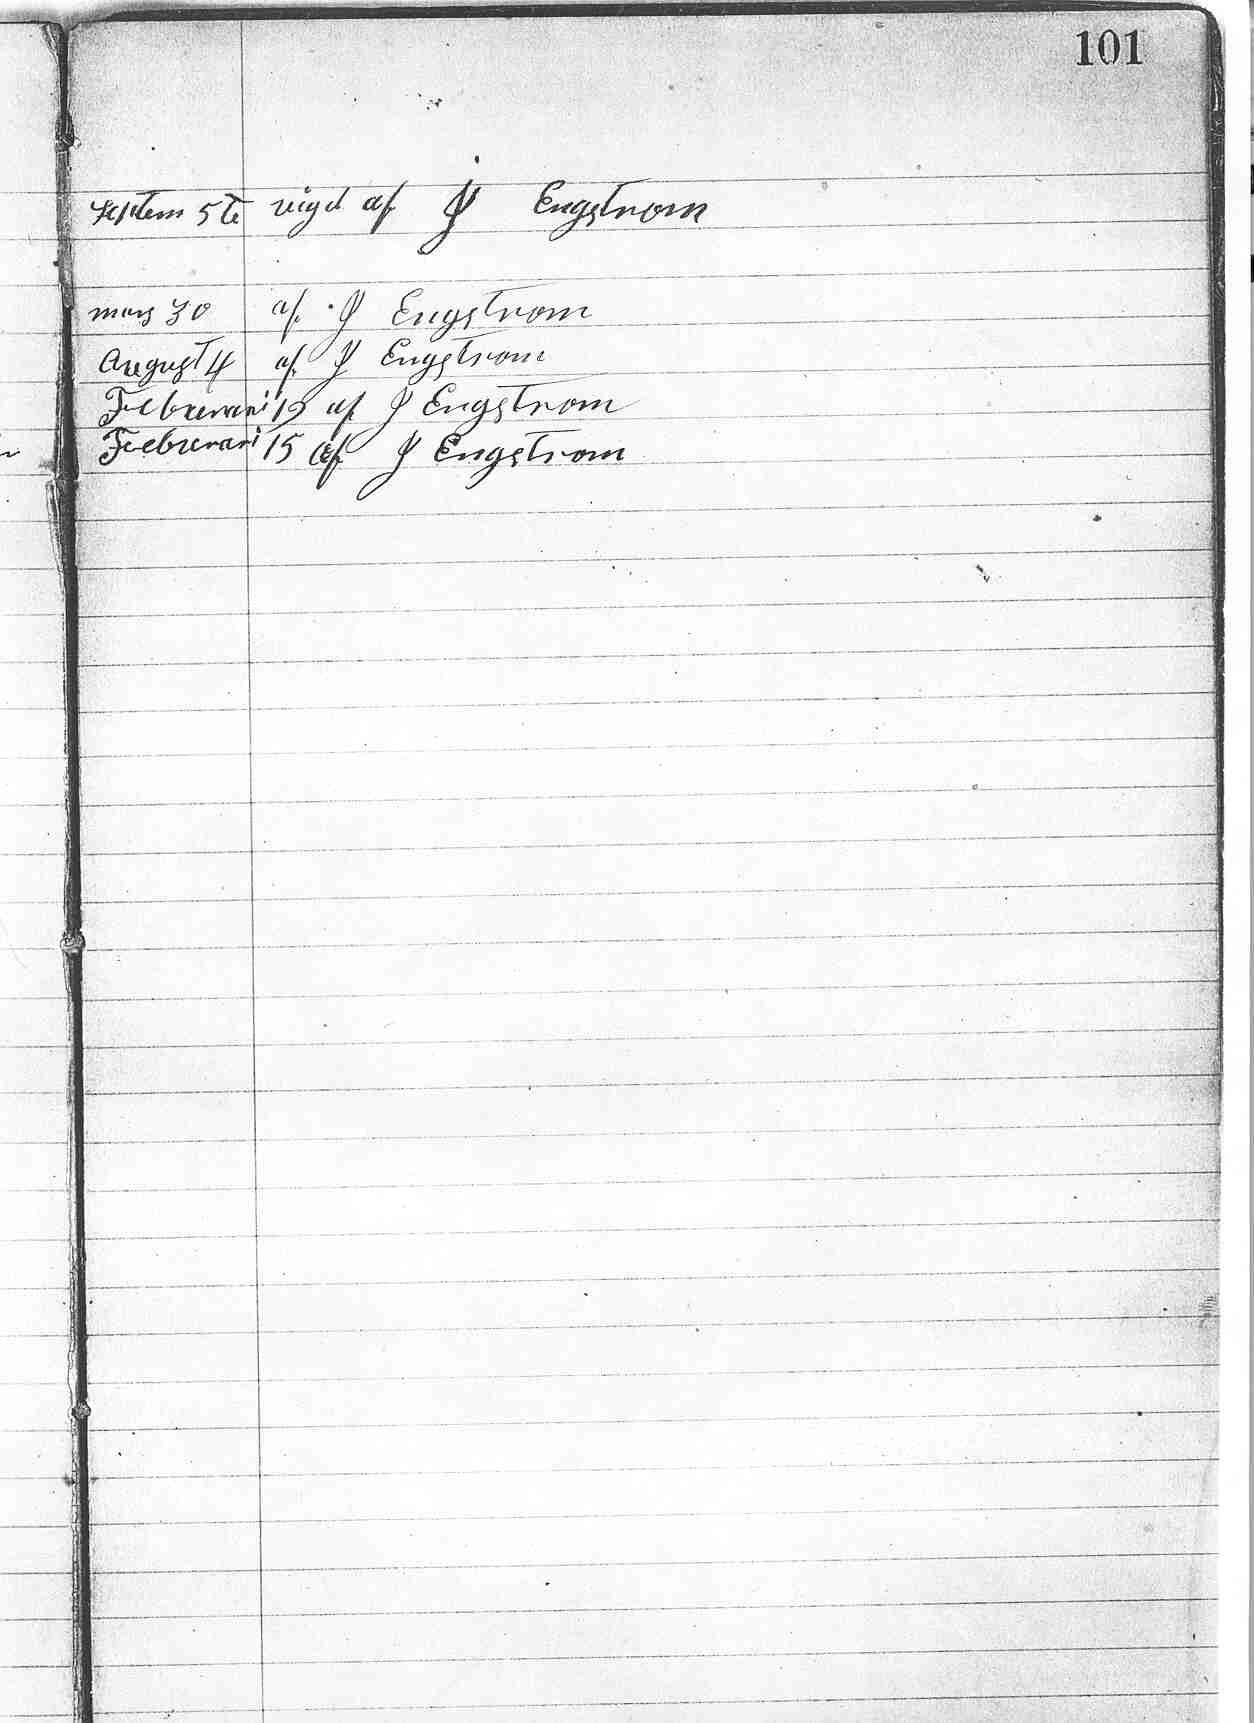 101
septem 5te vigd af J Engstrom
mars 30 af J Engstrom
August 4 af J Engstrom
Febrewari 12 af J Engstrom
Feebrewari 15 af J Engstrom